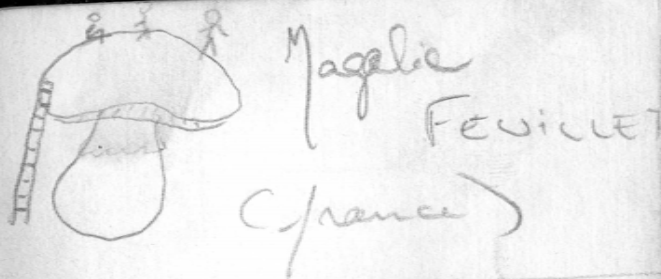 Magalie
FEUILLET
(france)